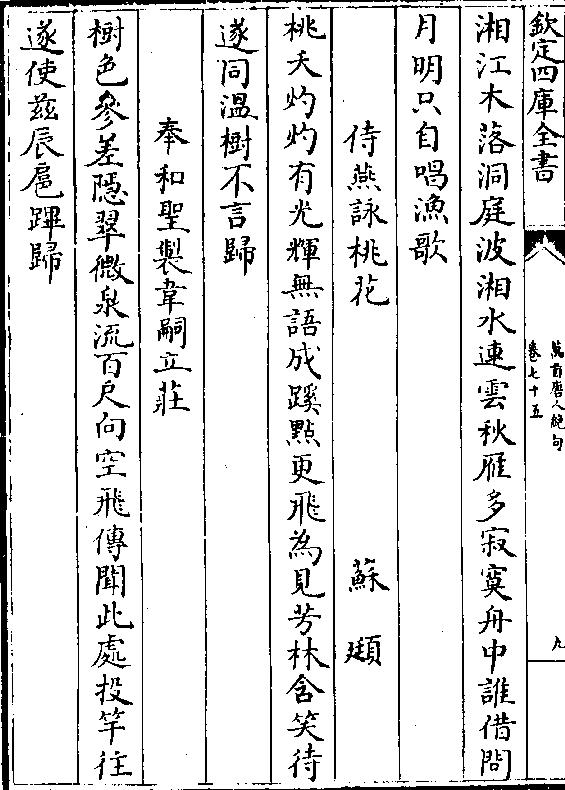 欽定四庫全書
萬首唐人絶句
卷七十五
九
湘江木落洞庭波湘水連雲秋雁多寂寞舟中誰借問
月明只自唱漁歌
侍燕詠桃花
蘇頲
桃夭灼灼有光輝無語成蹊點更飛為見芳林含笑待
遂同溫樹不言歸
奉和聖製韋嗣立莊
樹色參差隱翠微泉流百尺向空飛傳聞此處投竿往
遂使茲辰扈蹕歸